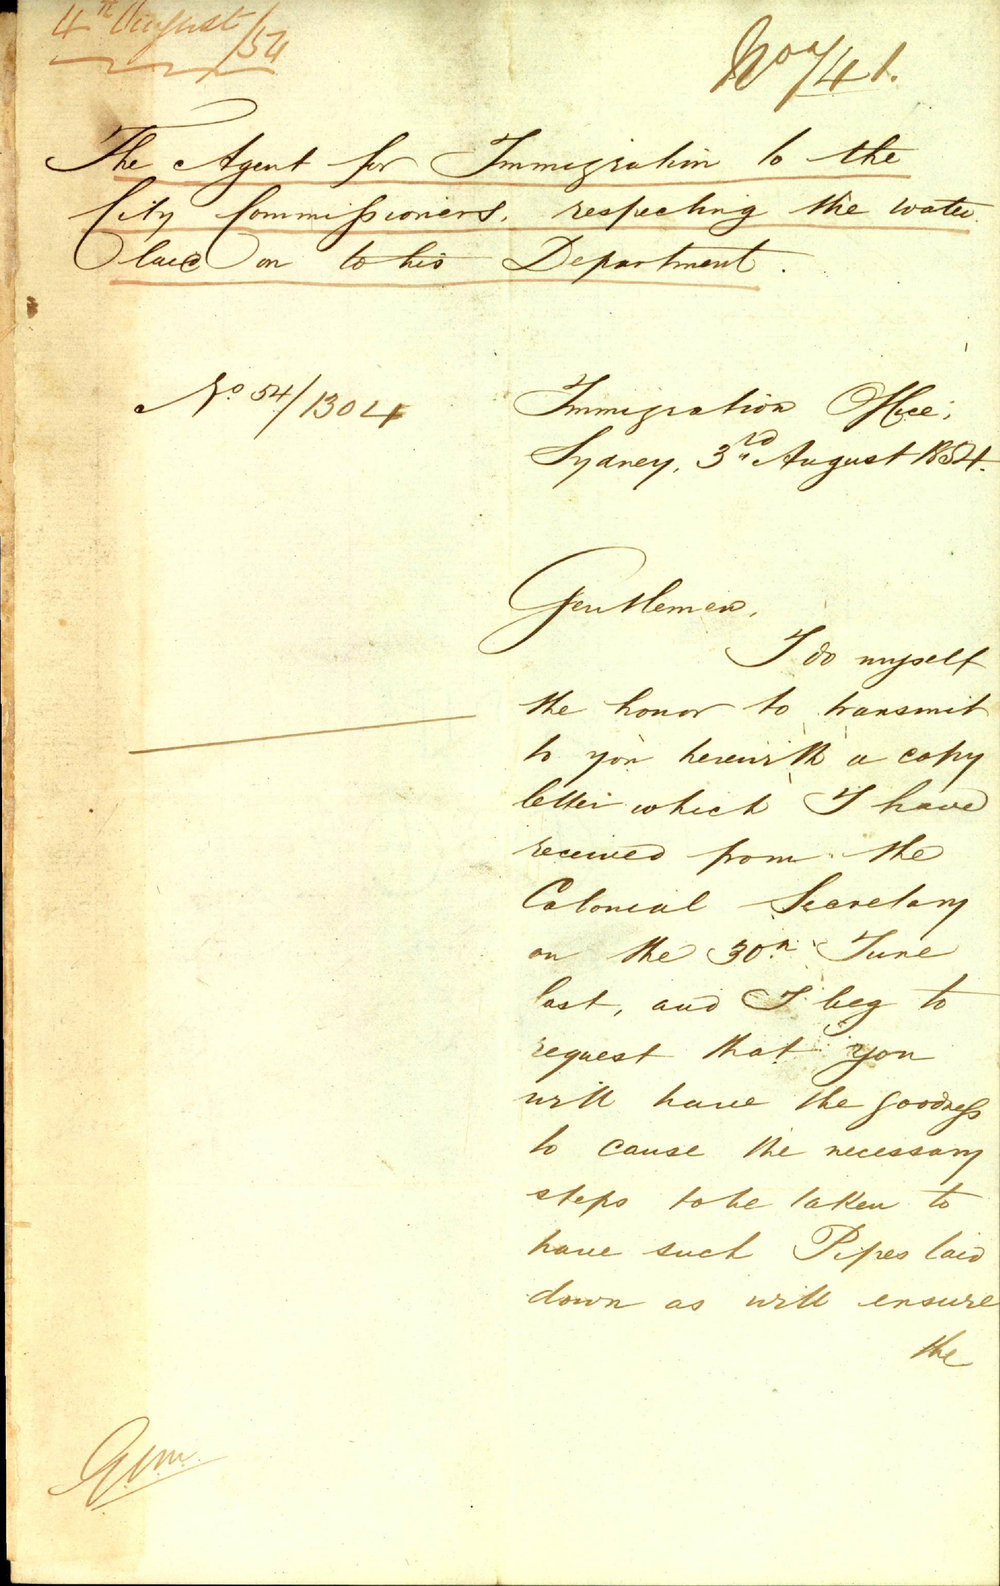 4th August/54
No 741.
The Agent for Immigration to the
City Commissioners, respecting the water
laid on to his Department.
No. 54/1304
Immigration Office;
Sydney, 3rd August 1854.
Gentlemen,
I do myself
the honor to transmit
to you herewith a copy
letter which I have
received from the
Colonial Secretary
on the 30th June
last, and I beg to
request that you
will have the goodness
to cause the necessary
steps to be taken to
have such Pipes laid
down as will ensure
the